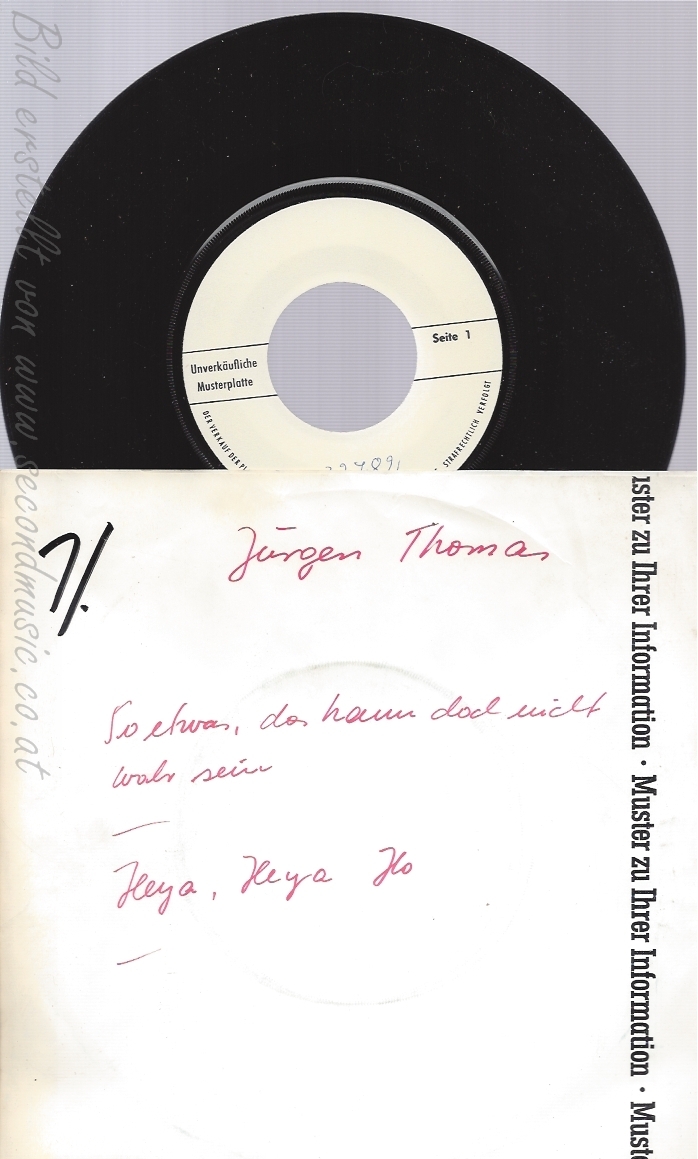 Bild erstellt von www.secondmusic.co.at
Unverkäufliche
Musterplatte
Seite 1
DER VERKAUF DER
STRAFRECHTLICH VERFOLGT
Jürgen Thomas
So etwas, das kann doch nicht
wahr sein
—
Heya, Heya Ho
—
ster zu Ihrer Information · Muster zu Ihrer Information · Muste